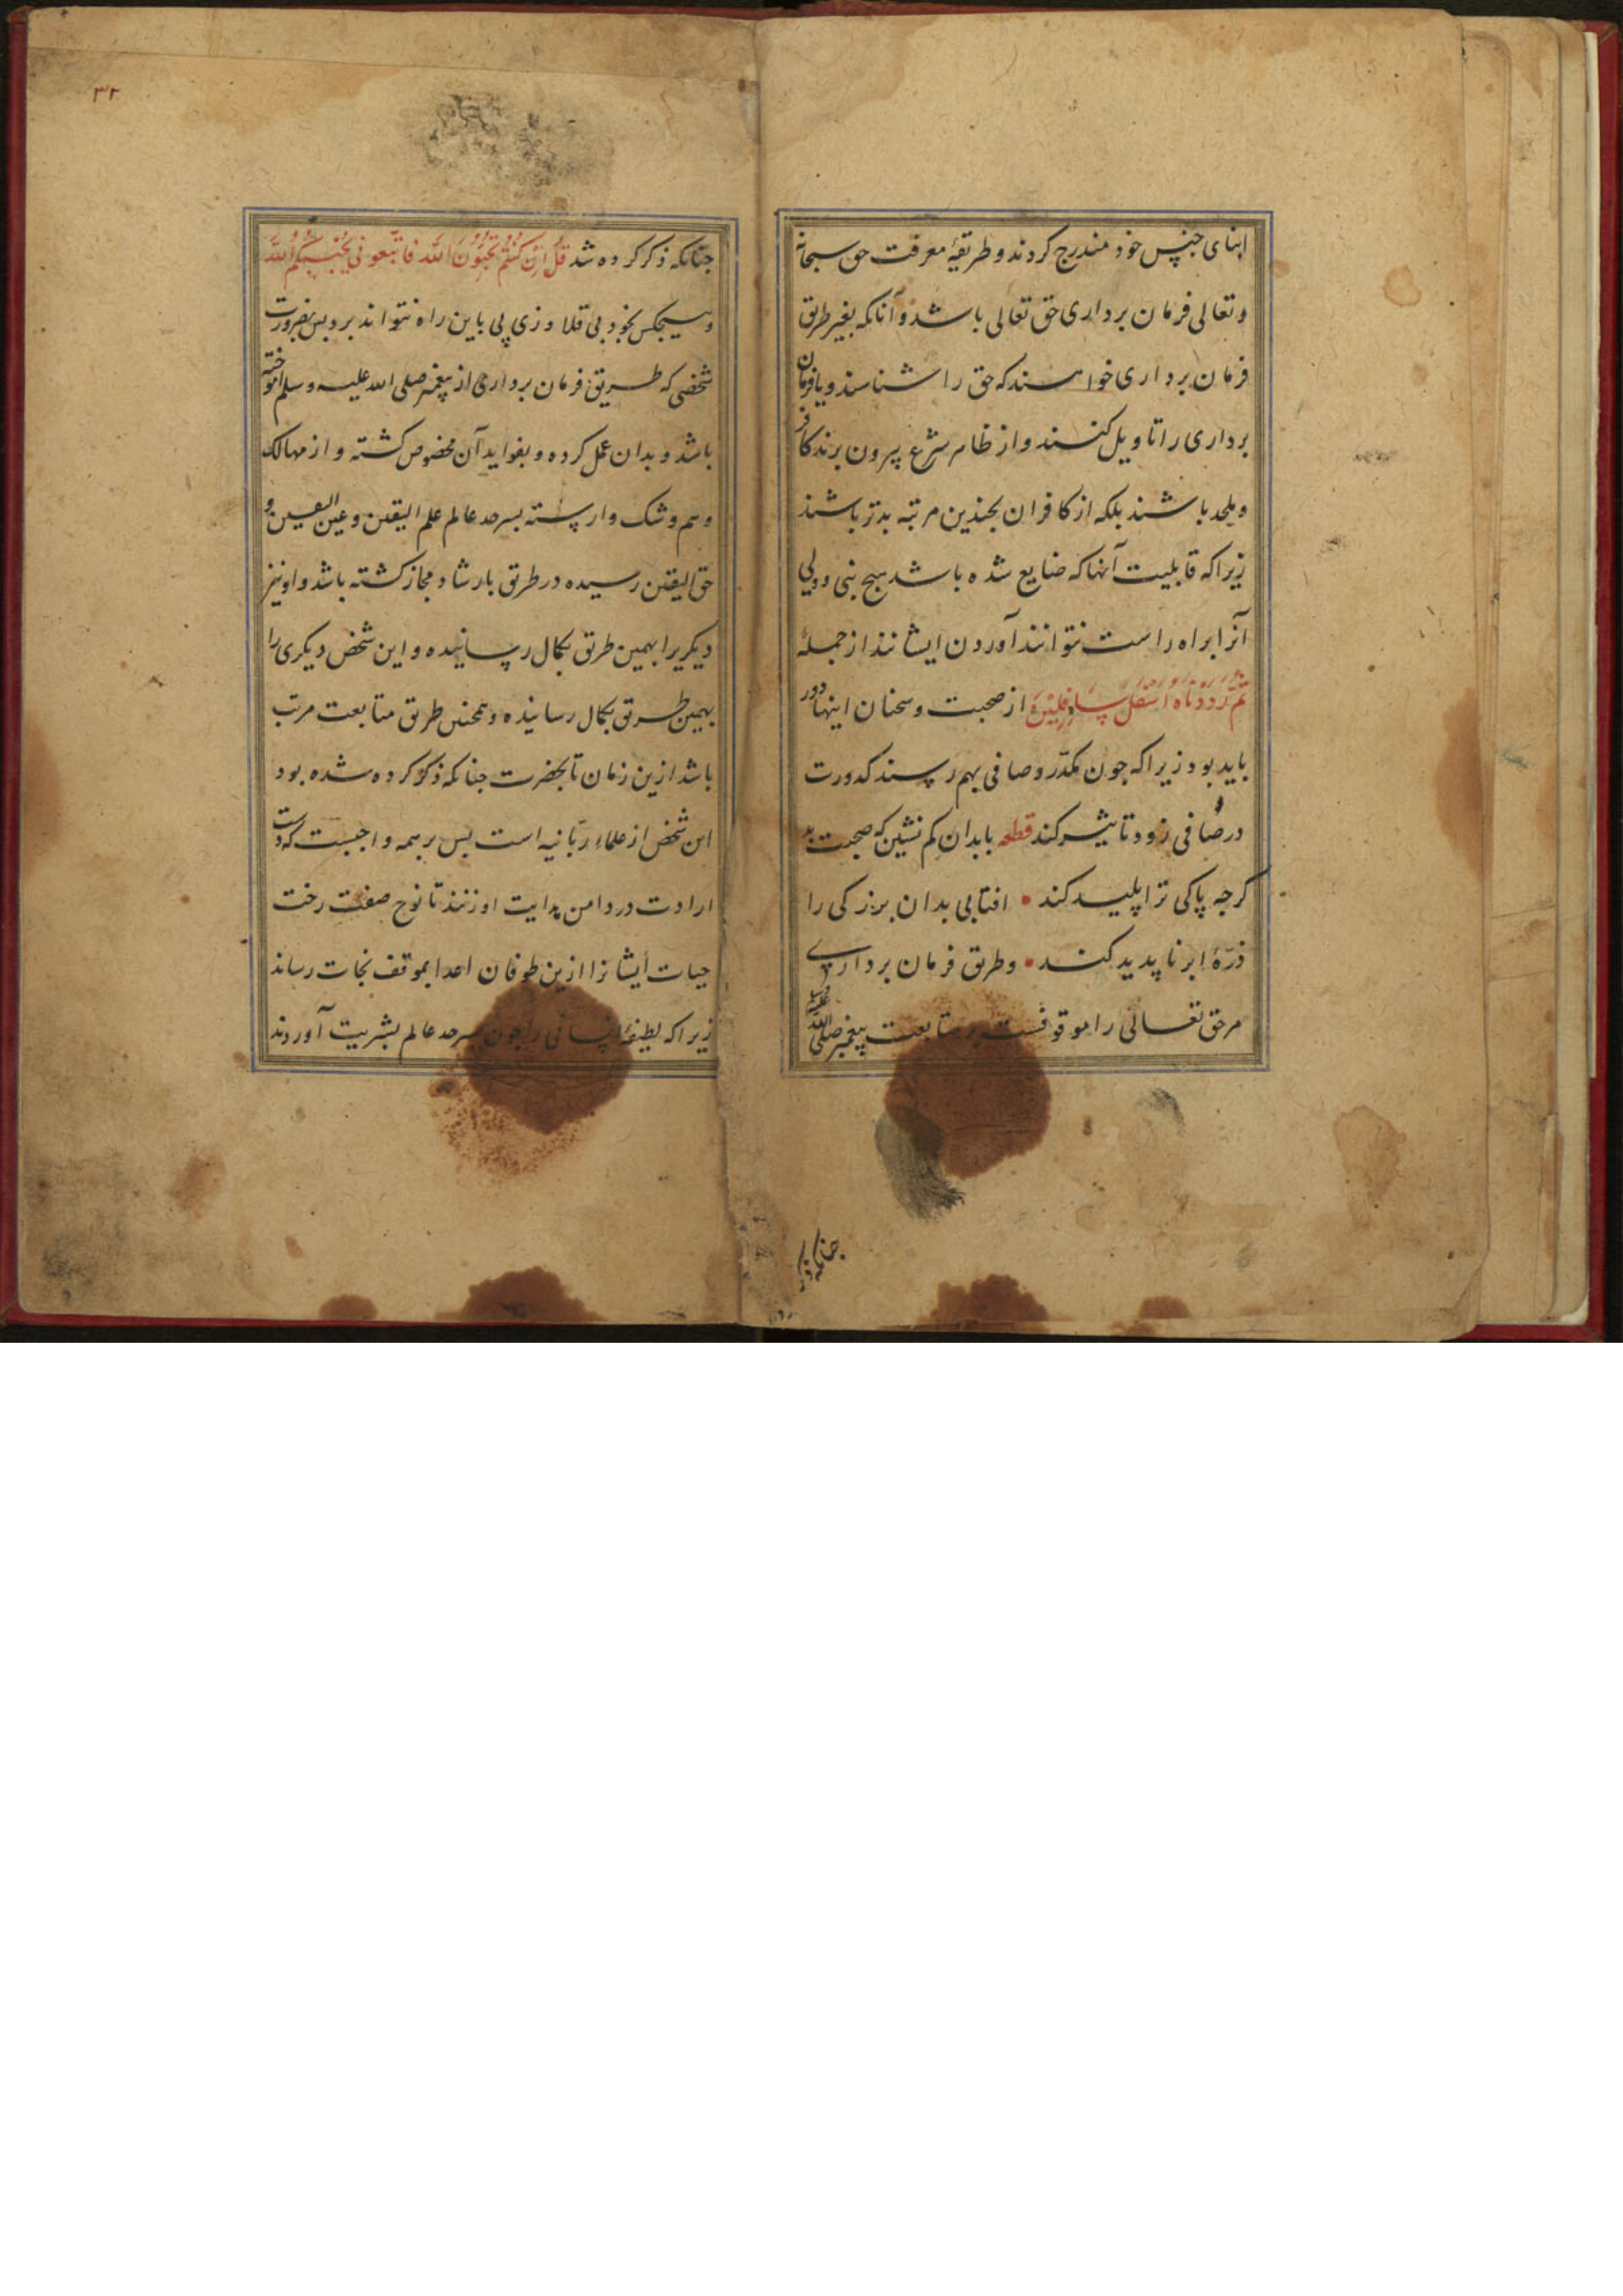 ابنای جنس خود مندرج کردند و طریقهٔ معرفت حق سبحانه
وتعالی فرمان برداری حق تعالی باشد و آنانکه بغیر طریق
فرمان برداری خواهند که حق را شناسند و یا فرمان
برداری را تاویل کنند و از ظاهر شرع بیرون برند کافر
و ملحد باشند بلکه از کافران بچندین مرتبه بدتر باشند
زیراکه قابلیت آنها که ضایع شده باشد هیچ نبی و ولی
آنرا براه راست نتوانند آوردن ایشانند از جملهٔ
ثم رددناه اسفل سافلین از صحبت و سخنان اینها دور
باید بود زیراکه جون مکدر و صافی بهم رسند کدورت
در صافی زود تاثیر کند قطعه بابدان کم نشین که صحبت بد
کرجه پاکی ترا پلید کند • افتابی بدان بزرکی را
ذرهٔ ابر ناپدید کند • و طریق فرمان برداری
مر حق تعالی را موقوفست بر متابعت پیغمبر صلی الله علیه
جنانکه ذکر
۳۲
جنانکه ذکر کرده شد قُل اِن کنتم تحبون الله فاتبعونی یحببکم الله
و هیچکس بخود بی قلاوزی پی باین راه نتواند برد بس بضرورت
شخصی که طریق فرمان برداری از پیغمبر صلی الله علیه وسلم اموخته
باشد و بدان عمل کرده و بفواید آن مخصوص کشته و از مهالک
وهم و شک وارسته بسرحد عالم علم الیقین و عین الیقین و
حق الیقین رسیده در طریق بارشاد مجاز کشته باشد و او نیز
دیکریرا بهمین طریق بکمال رسانیده و این شخص دیکری را
بهمین طریق بکمال رسانیده و همچنین طریق متابعت مرتب
باشد ازین زمان تا بحضرت جنانکه ذکر کرده شده بود
این شخص از علماء ربانیه است بس بر همه واجبست که دست
ارادت در دامن هدایت او زنند تا نوح صفت رخت
حیات ایشانرا ازین طوفان اعدا بموقف نجات رساند
زیراکه لطیفهٔ انسانی را جون بسرحد عالم بشریت آوردند